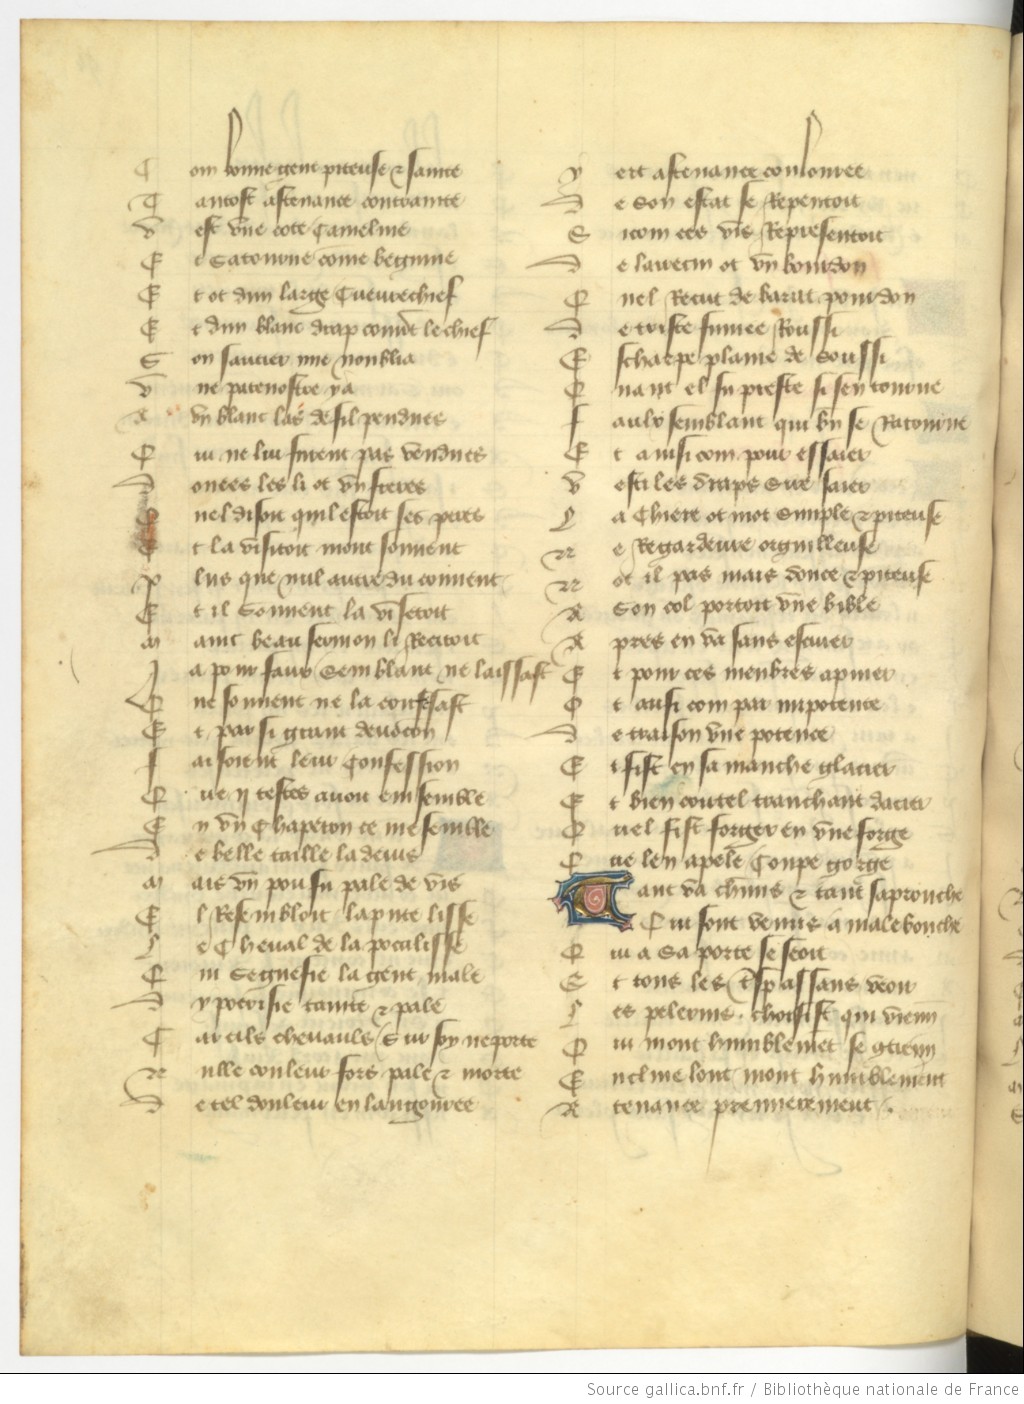 Com bonne gent piteuse et sainte
Tantost astenance contrainte
Vest vne cote Cameline
Et Satourne come beguine
Et ot dun large Cueurechief
Et dun blanc drap couurt le chief
Son sautier mie noublia
Vne patenostre y a
A vn blanc las de fil pendues
Qui ne lui furent pas vendues
Donees les li ot vn freres
Quel disoit quil estoit ses peres
Et la visitoit mont souuent
Plus que nul autre du couuent
Et il Souuent la visetoit
Maint beau sermon li Recitoit
Ja pour faus Semblant ne laissast
Que souuent ne la confessast
Et par si grant deuocion
Faisoient leur Confession
Que ij testes auoit ensemble
En vn Chaperon ce me semble
De belle taille la deuis
Mais vn pou fu pale de vis
El Resembloit la pute lisse
Le Cheual de la pocalisse
Qui Segnefie la gent male
Dypocrisie tainte et pale
Car cils cheuauls Sur soy ne porte
Nulle couleur fors pale et morte
De tel douleur enlangouree
Yert astenance coulouree
De Son estat se Repentoit
Sicom ces vis Representoit
De larrecin ot vn bourdon
Quel Recut de barat pour don
De triste fumee Roussi
Escharpe plaine de Soussi
Quant el fu preste si sen tourne
Faulx semblant qui bn se Ratourne
Et ainsi com pour essaier
Vesti les draps Sire saier
La Chiere ot mot Simple et piteuse
Ne Regardeure orguilleuse
Not il pas mais douce et piteuse
A Son col portoit vne bible
Apres en va sans escuier
Et pour ces menbres apuier
Ot ausi com par inpotence
De traison vne potence
Et fist en sa manche glacier
Et bien coutel tranchant dacier
Quel fist forger en vne forge
Que len apele Coupe gorge
Tant va chūns et tant saprouche
Qui sont venus a male bouche
Qui a Sa porte se seoit
Et tous les trespassans veoit
Les pelerins choisist qui vienn
Qui mont humblemet se gtienn
Encline lont mont humblement
Atenance premierement.